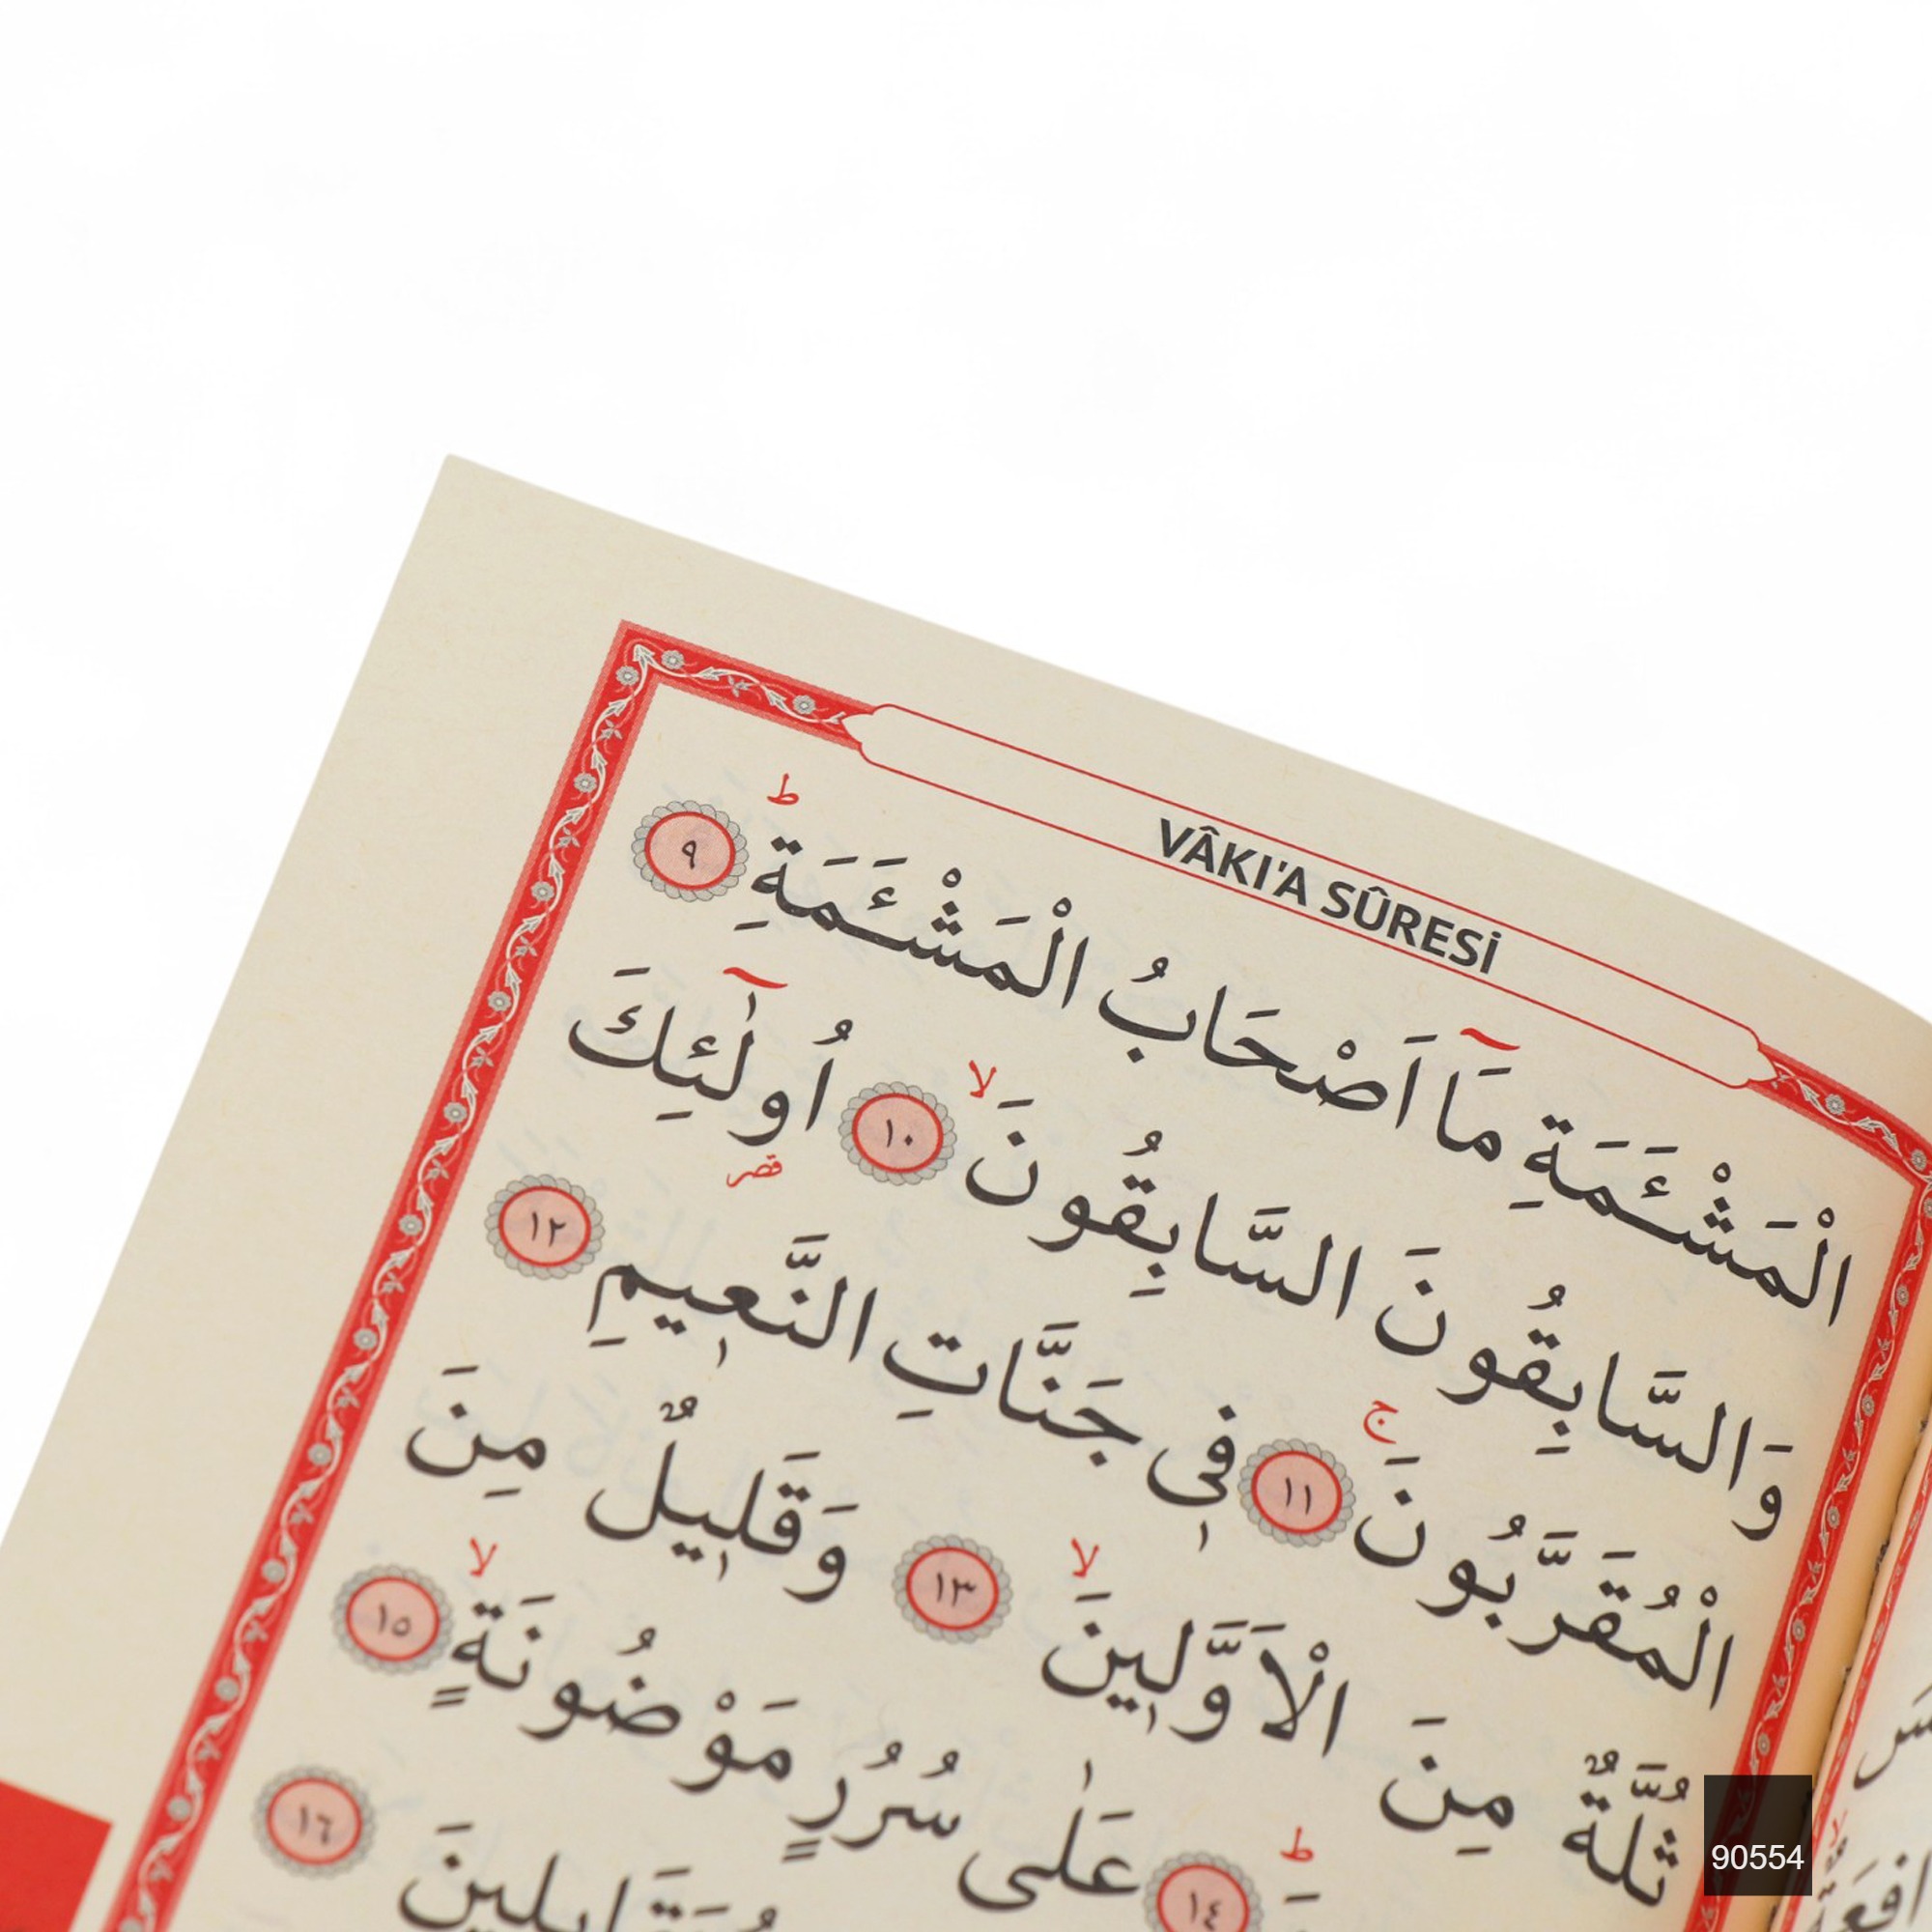 VÂKI'A SÛRESİ
الْمَشْـَٔمَةِ مَٓا اَصْحَابُ الْمَشْـَٔمَةِ ط ٩
وَالسَّابِقُونَ السَّابِقُونَ لا ١٠ اُو۬لٰٓئِكَ قصر
الْمُقَرَّبُونَ ج ١١ فٖى جَنَّاتِ النَّعٖيمِ ١٢
ثُلَّةٌ مِنَ الْاَوَّلٖينَ لا ١٣ وَقَلٖيلٌ مِنَ
ط ١٤ عَلٰى سُرُرٍ مَوْضُونَةٍ لا ١٥
١٦
90554